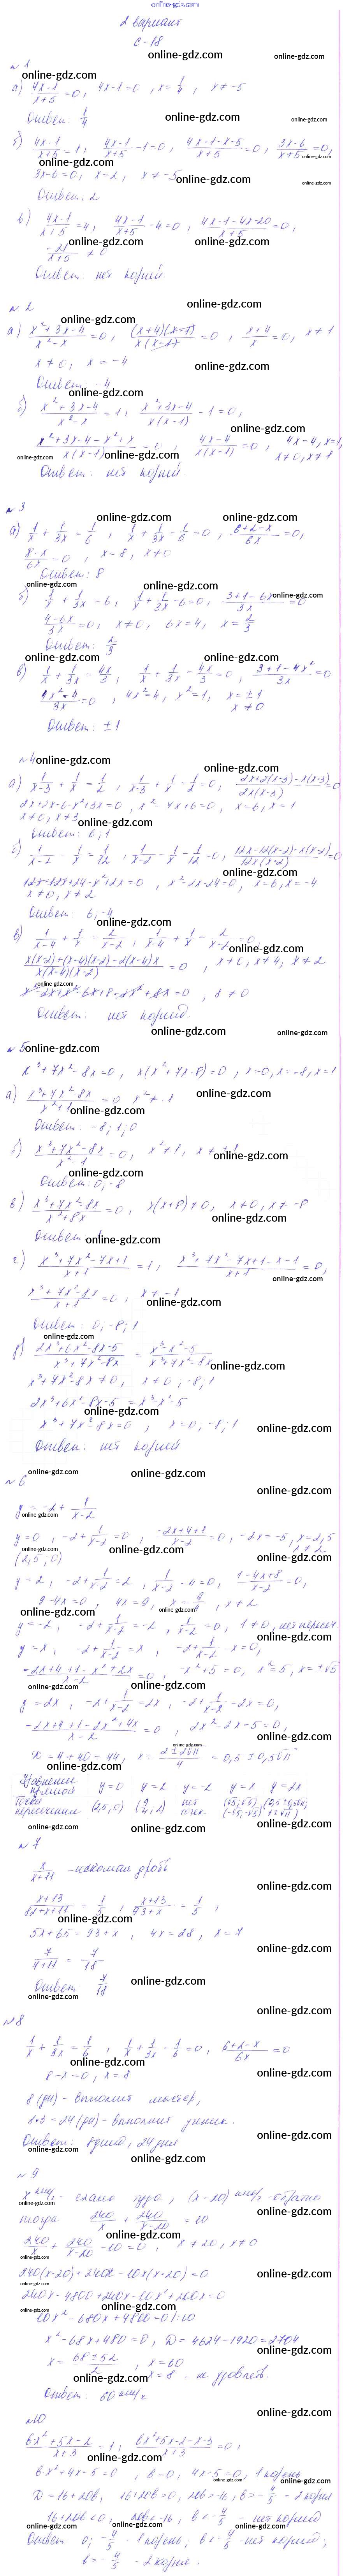 online-gdz.com
2 вариант
С-18
№1
а) (4x-1)/(x+5) = 0, 4x-1=0, x = 1/4, x ≠ -5
Ответ: 1/4
б) (4x-1)/(x+5) = 1, (4x-1)/(x+5) - 1 = 0, (4x-1-x-5)/(x+5) = 0, (3x-6)/(x+5) = 0,
3x-6=0, x=2, x ≠ -5
Ответ: 2
в) (4x-1)/(x+5) = 4, (4x-1)/(x+5) - 4 = 0, (4x-1-4x-20)/(x+5) = 0,
-21/(x+5) ≠ 0
Ответ: нет корней.
№2
а) (x²+3x-4)/(x²-x) = 0, ((x+4)(x-1))/(x(x-1)) = 0, (x+4)/x = 0, x ≠ 1
x ≠ 0, x = -4
Ответ: -4
б) (x²+3x-4)/(x²-x) = 1, (x²+3x-4)/(x(x-1)) - 1 = 0,
(x²+3x-4-x²+x)/(x(x-1)) = 0, (4x-4)/(x(x-1)) = 0, 4x=4, x=1, x≠0, x≠1
Ответ: нет корней.
№3
а) 1/x + 1/3x = 1/6, 1/x + 1/3x - 1/6 = 0, (6+2-x)/6x = 0,
(8-x)/6x = 0, x=8, x≠0
Ответ: 8
б) 1/x + 1/3x = 6, 1/x + 1/3x - 6 = 0, (3+1-6x)/3x = 0
(4-6x)/3x = 0, x≠0, 6x=4, x = 2/3
Ответ: 2/3
в) 1/x + 1/3x = 4x/3, 1/x + 1/3x - 4x/3 = 0, (3+1-4x²)/3x = 0
4x²=4, x²=1, x=±1
x≠0
Ответ: ±1
№4
а) 1/(x-3) + 1/x = 1/2, 1/(x-3) + 1/x - 1/2 = 0, (2x+2(x-3)-x(x-3))/(2x(x-3)) = 0
2x+2x-6-x²+3x=0, x²-7x+6=0, x=6, x=1
x≠0, x≠3
Ответ: 6; 1
б) 1/(x-2) - 1/x = 1/12, 1/(x-2) - 1/x - 1/12 = 0, (12x-12(x-2)-x(x-2))/(12x(x-2)) = 0
12x-12x+24-x²+2x=0, x²-2x-24=0, x=6, x=-4
x≠0, x≠2
Ответ: 6; -4
в) 1/(x-4) + 1/x = 2/(x-2), 1/(x-4) + 1/x - 2/(x-2) = 0
(x(x-2)+(x-4)(x-2)-2(x-4)x)/(x(x-4)(x-2)) = 0, x≠0, x≠4, x≠2
x²-2x+x²-6x+8-2x²+8x=0, 8≠0
Ответ: нет корней.
№5
x³+7x²-8x=0, x(x²+7x-8)=0, x=0, x=-8, x=1
а) (x³+7x²-8x)/(x²+1) = 0 x²≠-1
Ответ: -8; 1; 0
б) (x³+7x²-8x)/(x²-1) = 0, x²≠1, x≠±1
Ответ: 0; -8
в) (x³+7x²-8x)/(x²+8x) = 0, x(x+8)≠0, x≠0, x≠-8
Ответ: 1
г) (x³+7x²-7x+1)/(x+1) = 1, (x³+7x²-7x+1-x-1)/(x+1) = 0,
(x³+7x²-8x)/(x+1) = 0, x≠-1
Ответ: 0; -8; 1
д) (2x³+6x²-8x-5)/(x³+7x²-8x) = (x³-x²-5)/(x³+7x²-8x)
x³+7x²-8x≠0, x≠0; -8; 1
2x³+6x²-8x-5=x³-x²-5
x³+7x²-8x=0, x=0; -8; 1
Ответ: нет корней
№6
y = -2 + 1/(x-2)
y=0, -2+1/(x-2)=0, (-2x+4+1)/(x-2)=0, -2x=-5, x=2,5
x≠2
(2,5; 0)
y=2, -2+1/(x-2)=2, 1/(x-2)-4=0, (1-4x+8)/(x-2)=0,
9-4x=0, 4x=9, x=9/4, x≠2
y=-2, -2+1/(x-2)=-2, 1/(x-2)=0, 1≠0, нет пересеч.
y=x, -2+1/(x-2)=x, -2+1/(x-2)-x=0,
(-2x+4+1-x²+2x)/(x-2)=0, -x²+5=0, x²=5, x=±√5
y=2x, -2+1/(x-2)=2x, -2+1/(x-2)-2x=0,
(-2x+4+1-2x²+4x)/(x-2)=0, 2x²-2x-5=0,
D=4+40=44, x=(2±2√11)/4=0,5±0,5√11
Уравнение прямой y=0 y=2 y=-2 y=x y=2x
Точки пересечения (2,5; 0) (9/4; 2) нет точек (√5; √5) (-√5; -√5) (0,5±0,5√11; 1±√11)
№7
x/(x+11) - искомая дробь
(x+13)/(82+x+11) = 1/5, (x+13)/(93+x) = 1/5,
5x+65=93+x, 4x=28, x=7
7/(7+11) = 7/18
Ответ: 7/18
№8
1/x + 1/3x = 1/6, 1/x + 1/3x - 1/6 = 0, (6+2-x)/6x = 0
8-x=0, x=8
8 (дн) - выполнит мастер,
8·3=24 (дн) - выполнит ученик.
Ответ: 8 дней, 24 дня
№9
x км/ч - ехало туда, (x-20) км/ч - обратно
тогда 240/x + 240/(x-20) = 10
240/x + 240/(x-20) - 10 = 0, x≠20, x≠0
240(x-20)+240x-10x(x-20)=0
240x-4800+240x-10x²+200x=0
10x²-680x+4800=0 |:10
x²-68x+480=0, D=4624-1920=2704
x=(68±52)/2, x=60
x=8 - не удовлетв.
Ответ: 60 км/ч
№10
D=16+20b, 16+20b>0, 20b>-16, b>-4/5 - 2 корня
16+20b<0, 20b<-16, b<-4/5 - нет корней
Ответ: 0; -4/5 - 1 корень; b<-4/5 - нет корней;
b>-4/5 - 2 корня.